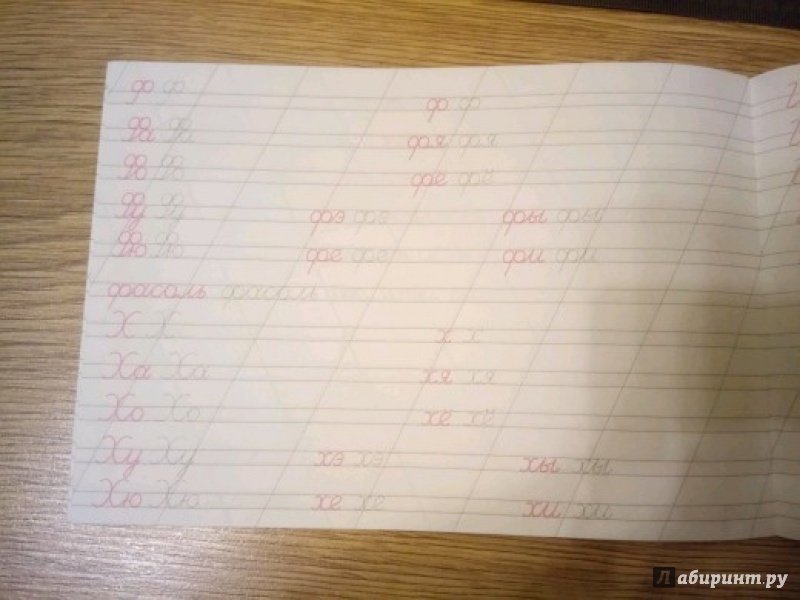 Ф Ф ф ф
Фа Фа фя фя
Фо Фо фё фё
Фу Фу фэ фэ фы фы
Фю Фю фе фе фи фи
фасоль фасоль
Х Х х х
Ха Ха хя хя
Хо Хо хё хё
Ху Ху хэ хэ хы хы
Хю Хю хе хе хи хи
Лабиринт.ру